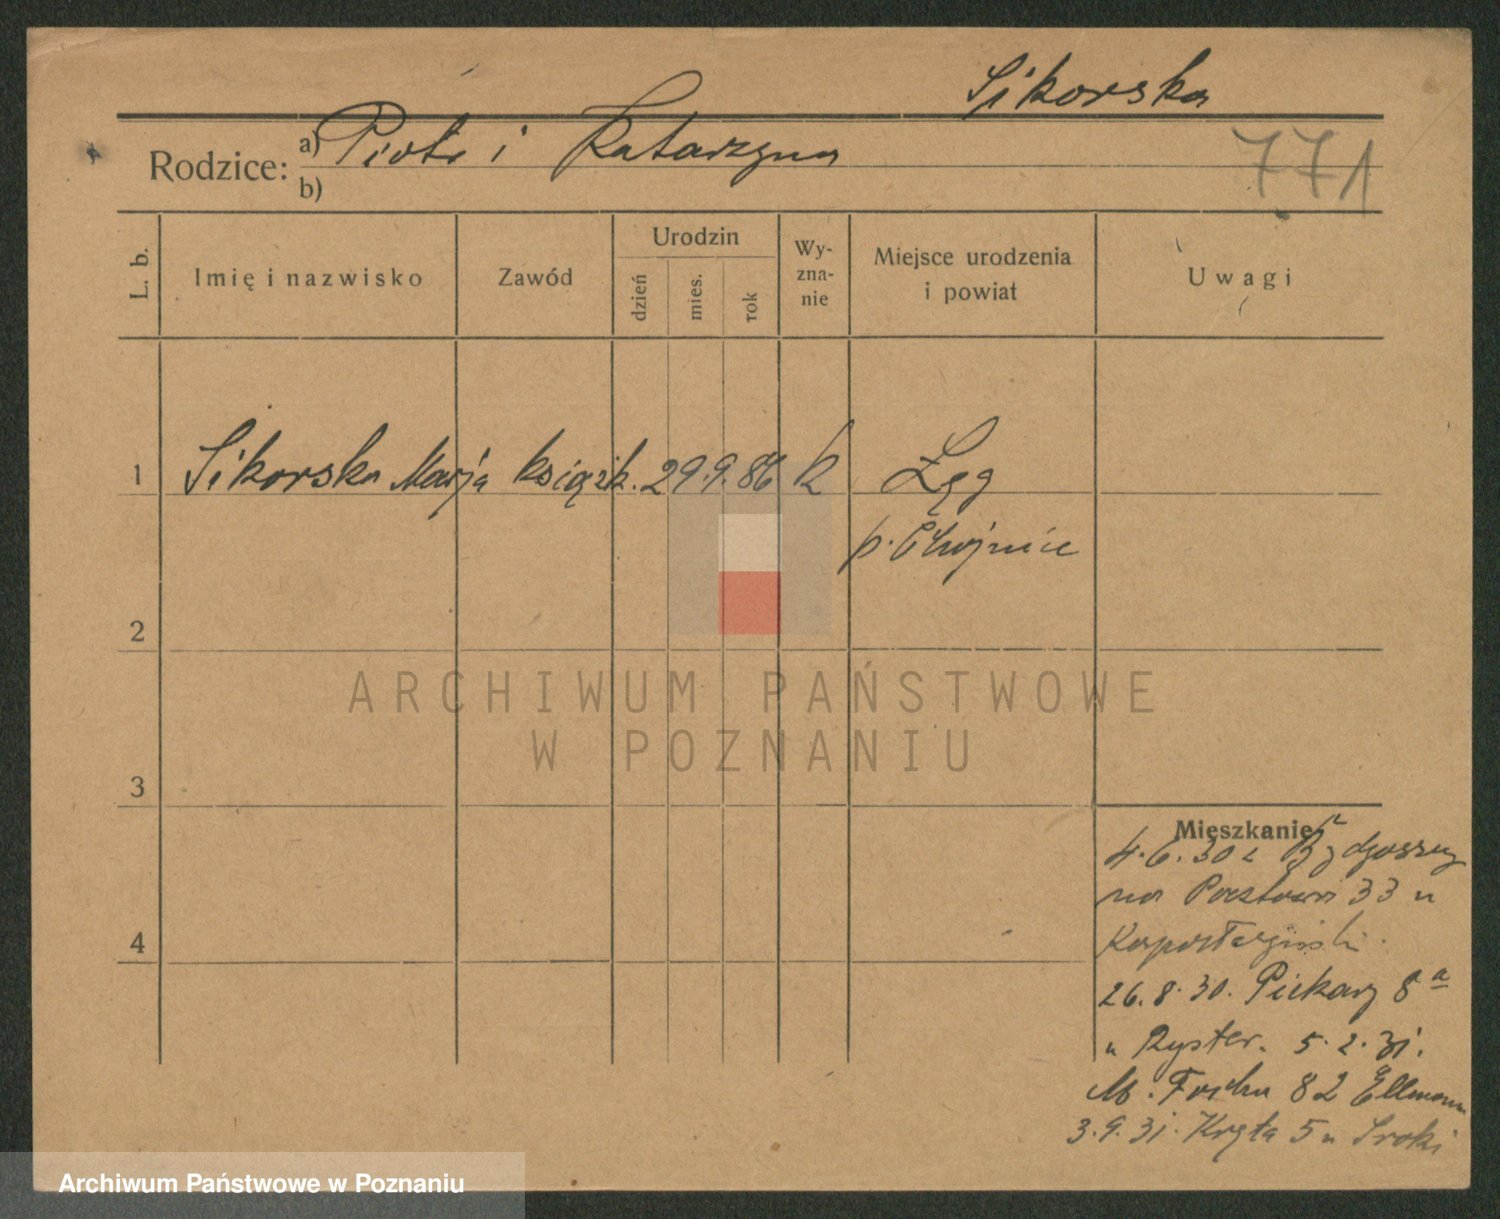 Sikorska
Rodzice: a) Piotr i Katarzyna
b)
771
L. b.
Imię i nazwisko
Zawód
Urodzin
dzień
mies.
rok
Wy-
zna-
nie
Miejsce urodzenia
i powiat
Uwagi
1 Sikorska Marja książk. 29.9.86 k Łąg
p. Chojnice
2
3
4
Mieszkanie
4.6.30 z Bydgoszczy
na Pocztowa 33 u
26.8.30. Piekary 8a
u Ryster. 5.2.31.
M. Focha 82 Ellmann
3.9.31. Kręta 5 u Sroki
ARCHIWUM PAŃSTWOWE
W POZNANIU
Archiwum Państwowe w Poznaniu